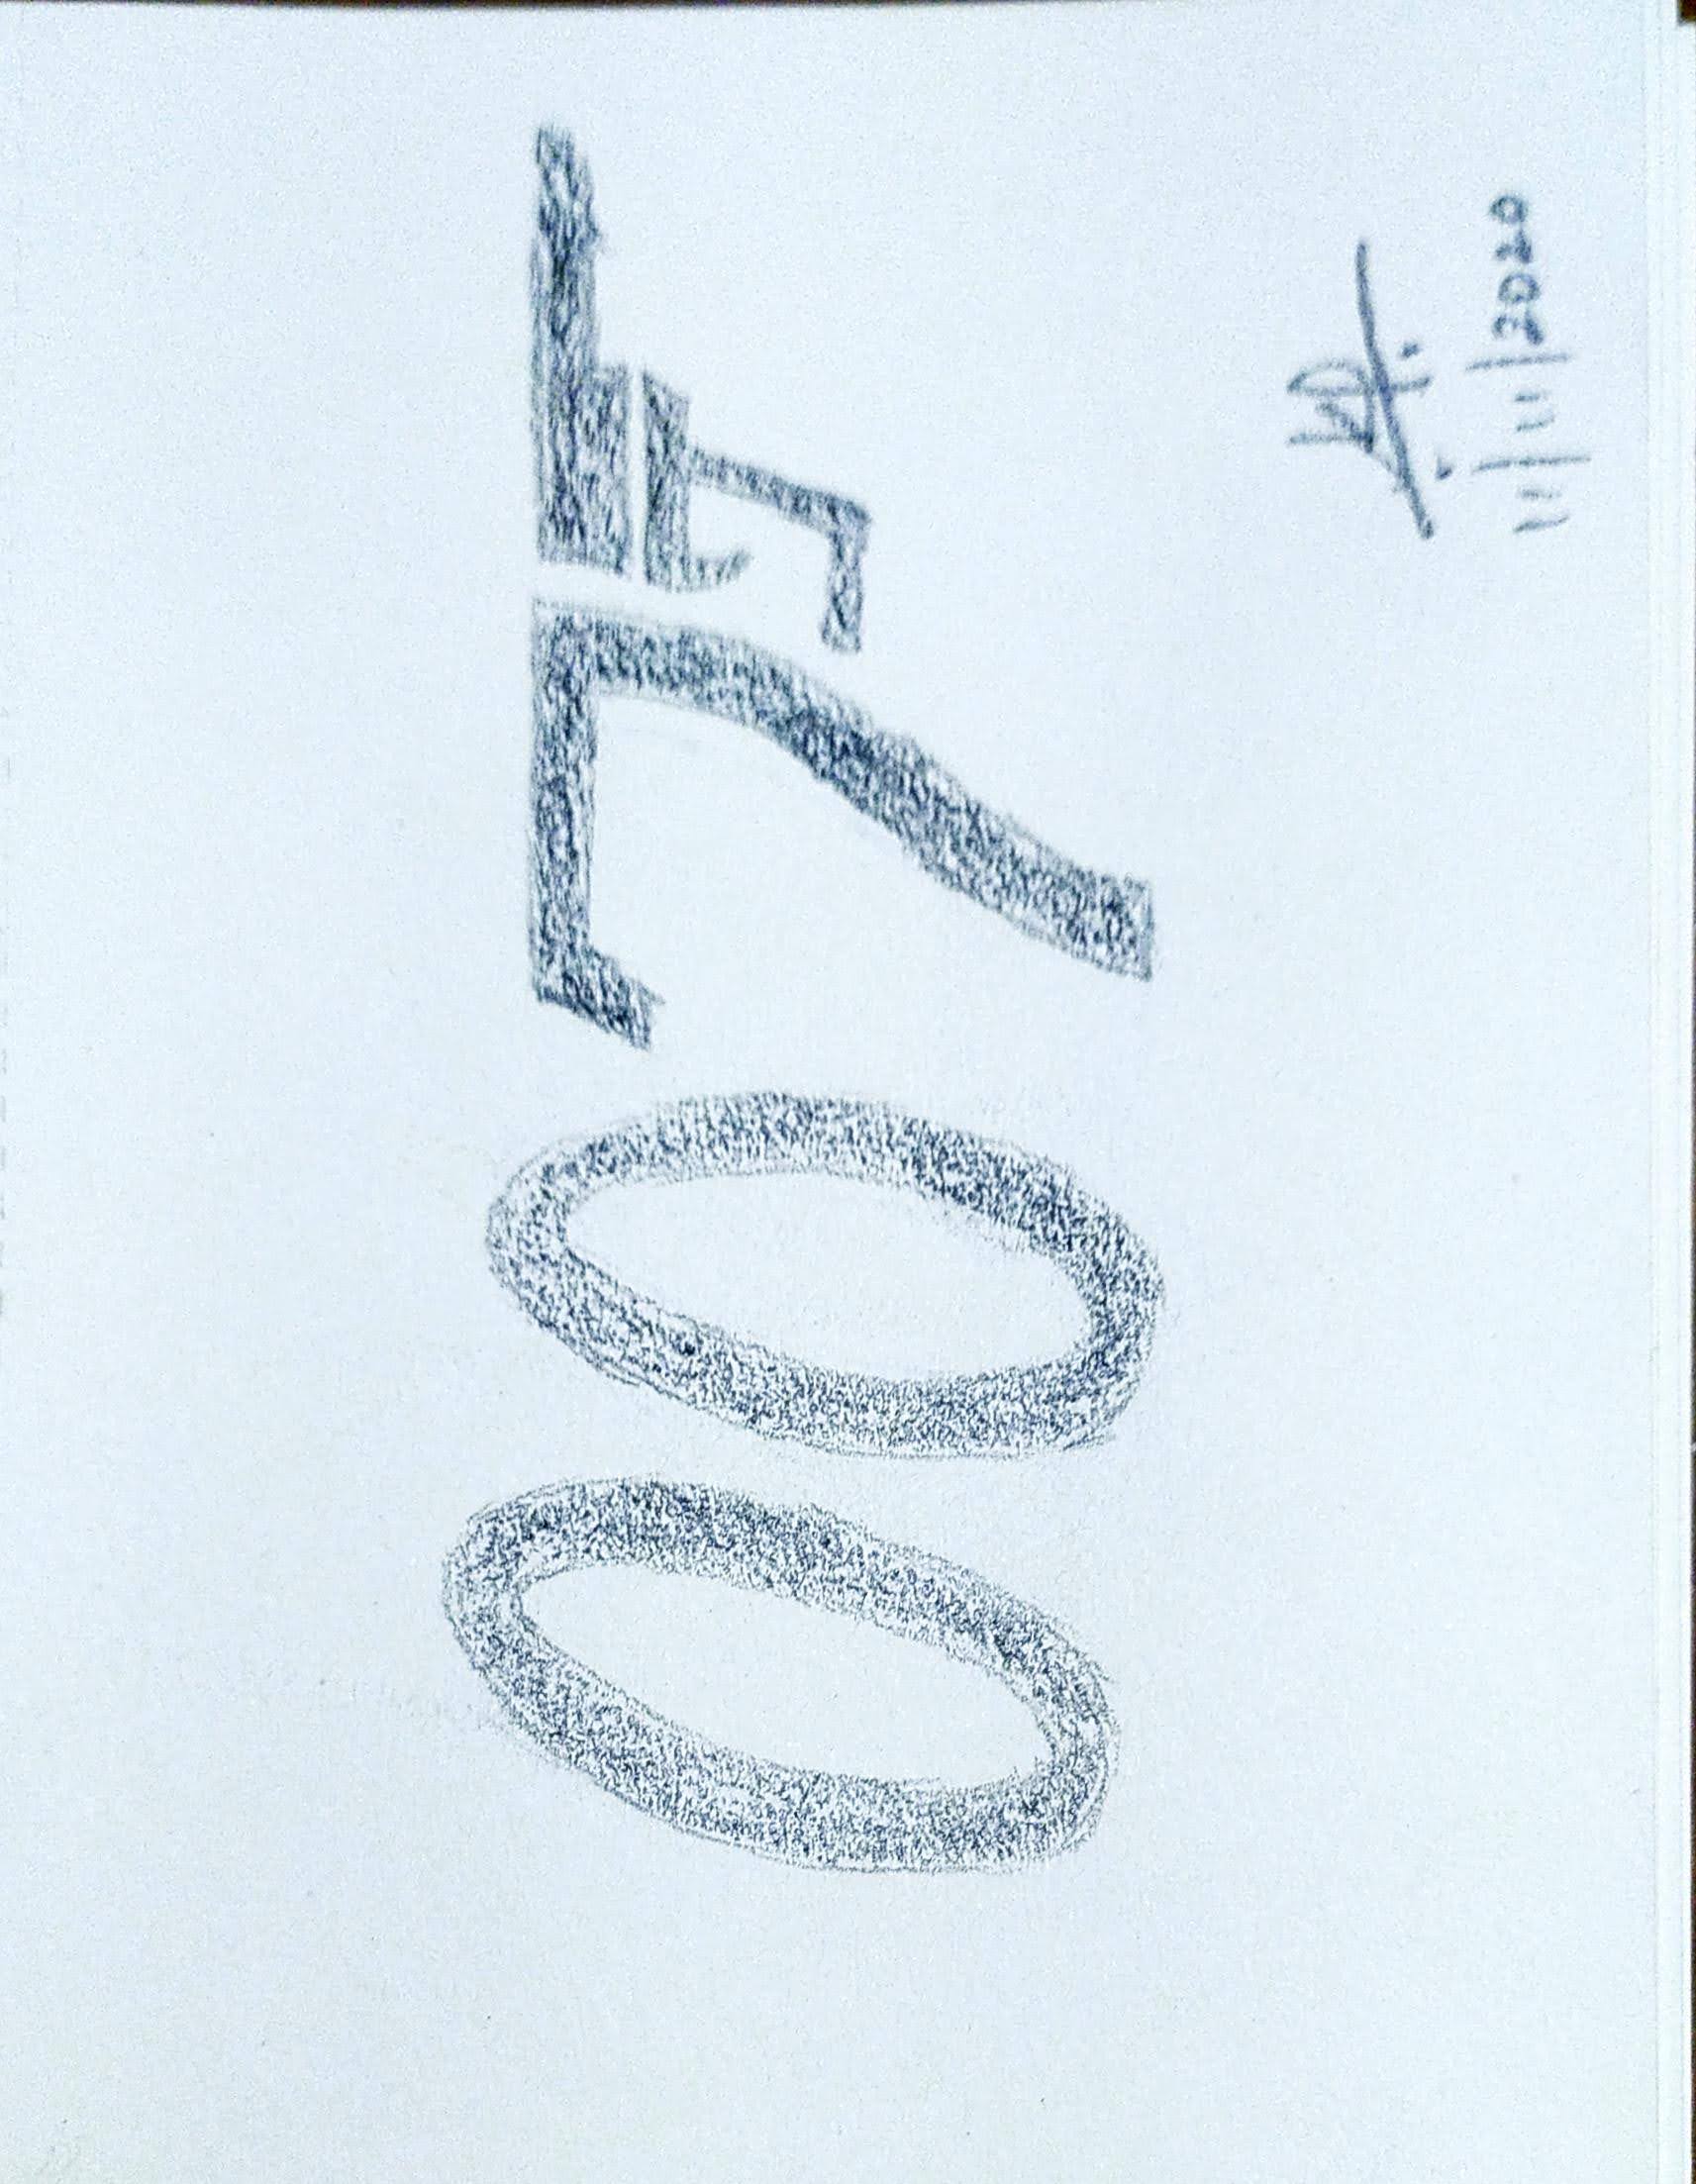 007
11/11/2020